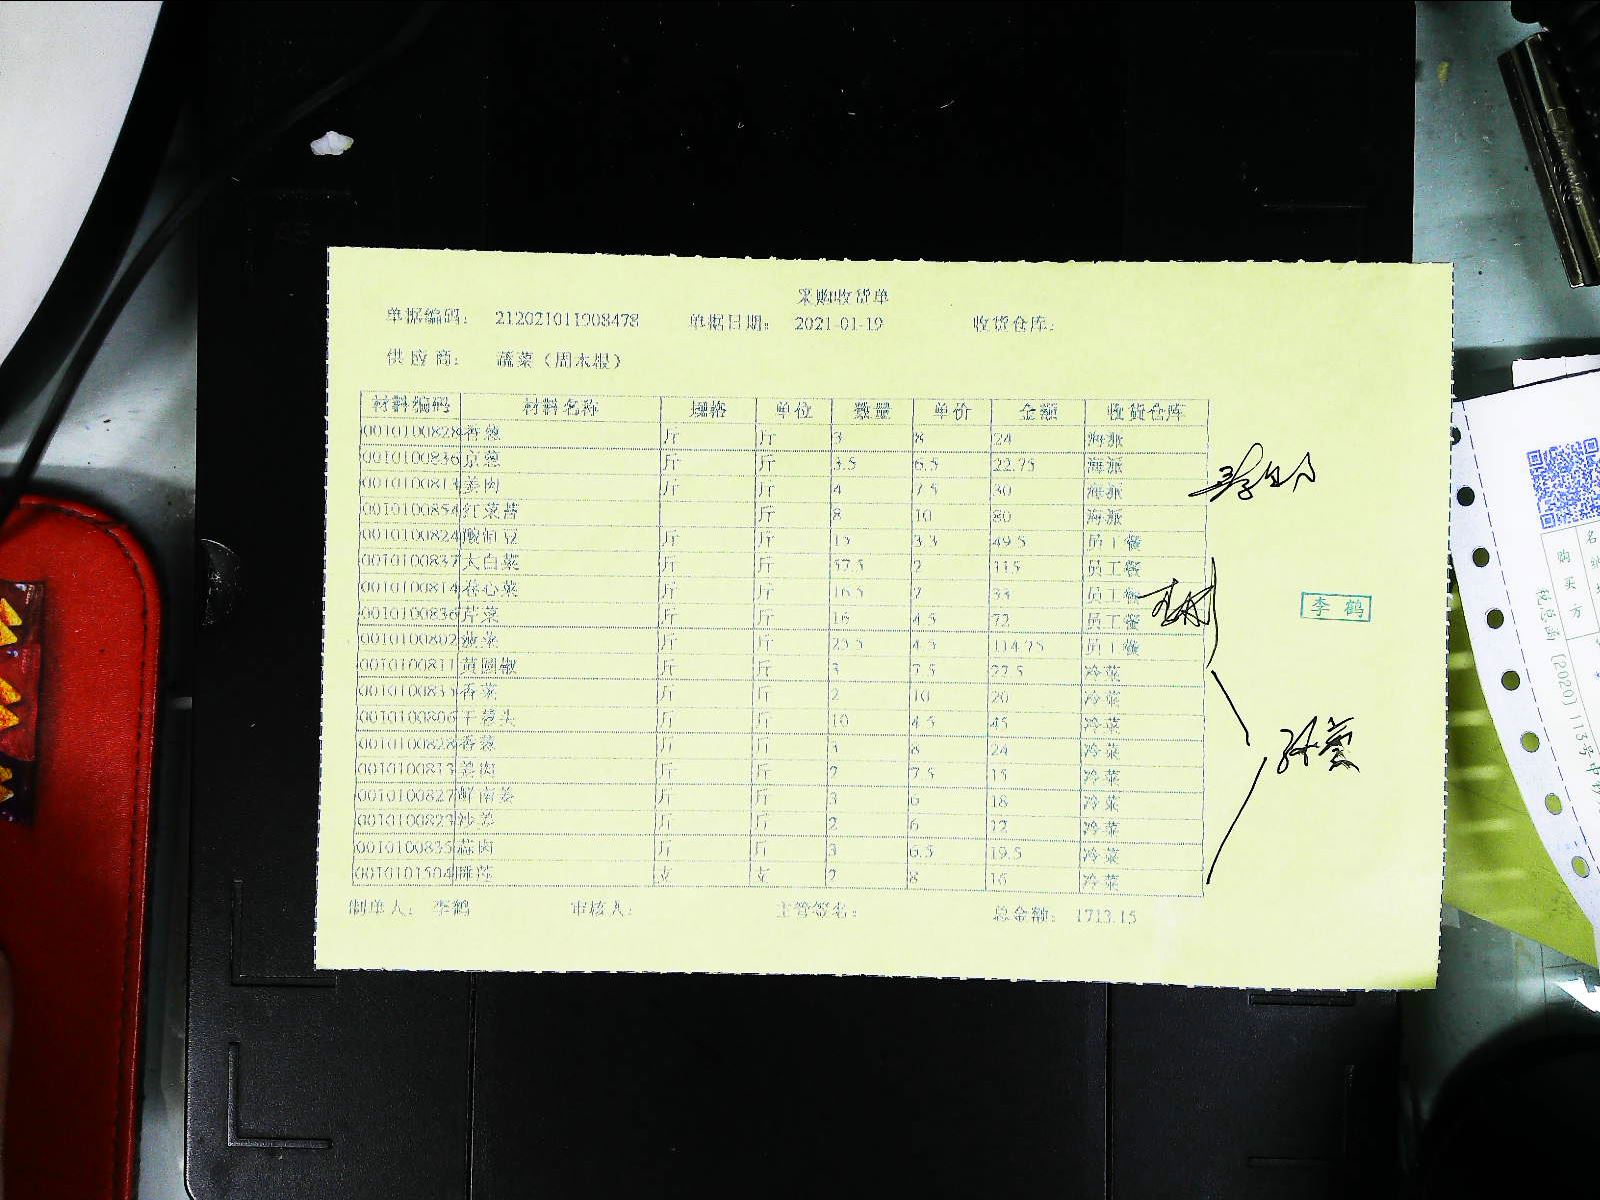 采购收货单
单据编码： 212021011908478 单据日期： 2021-01-19 收货仓库：
供应商： 蔬菜（周木根）
材料编码 材料名称 规格 单位 数量 单价 金额 收货仓库
0010100828 香葱 斤 斤 3 8 24 海派
0010100836 京葱 斤 斤 3.5 6.5 22.75 海派
0010100813 姜肉 斤 斤 4 7.5 30 海派
0010100854 红菜苔 斤 8 10 80 海派
0010100824 酸豇豆 斤 斤 15 3.3 49.5 员工餐
0010100837 大白菜 斤 斤 57.5 2 115 员工餐
0010100814 卷心菜 斤 斤 16.5 2 33 员工餐
0010100836 芹菜 斤 斤 16 4.5 72 员工餐
0010100802 菠菜 斤 斤 25.5 4.5 114.75 员工餐
0010100811 黄圆椒 斤 斤 3 7.5 22.5 冷菜
0010100835 香菜 斤 斤 2 10 20 冷菜
0010100806 干葱头 斤 斤 10 4.5 45 冷菜
0010100828 香葱 斤 斤 3 8 24 冷菜
0010100813 姜肉 斤 斤 2 7.5 15 冷菜
0010100827 鲜南姜 斤 斤 3 6 18 冷菜
0010100823 沙姜 斤 斤 2 6 12 冷菜
0010100835 蒜肉 斤 斤 3 6.5 19.5 冷菜
0010101504 睡莲 支 支 2 8 16 冷菜
制单人： 李鹤 审核人： 主管签名： 总金额： 1713.15
李鹤
购买方
税总函[2020]113号